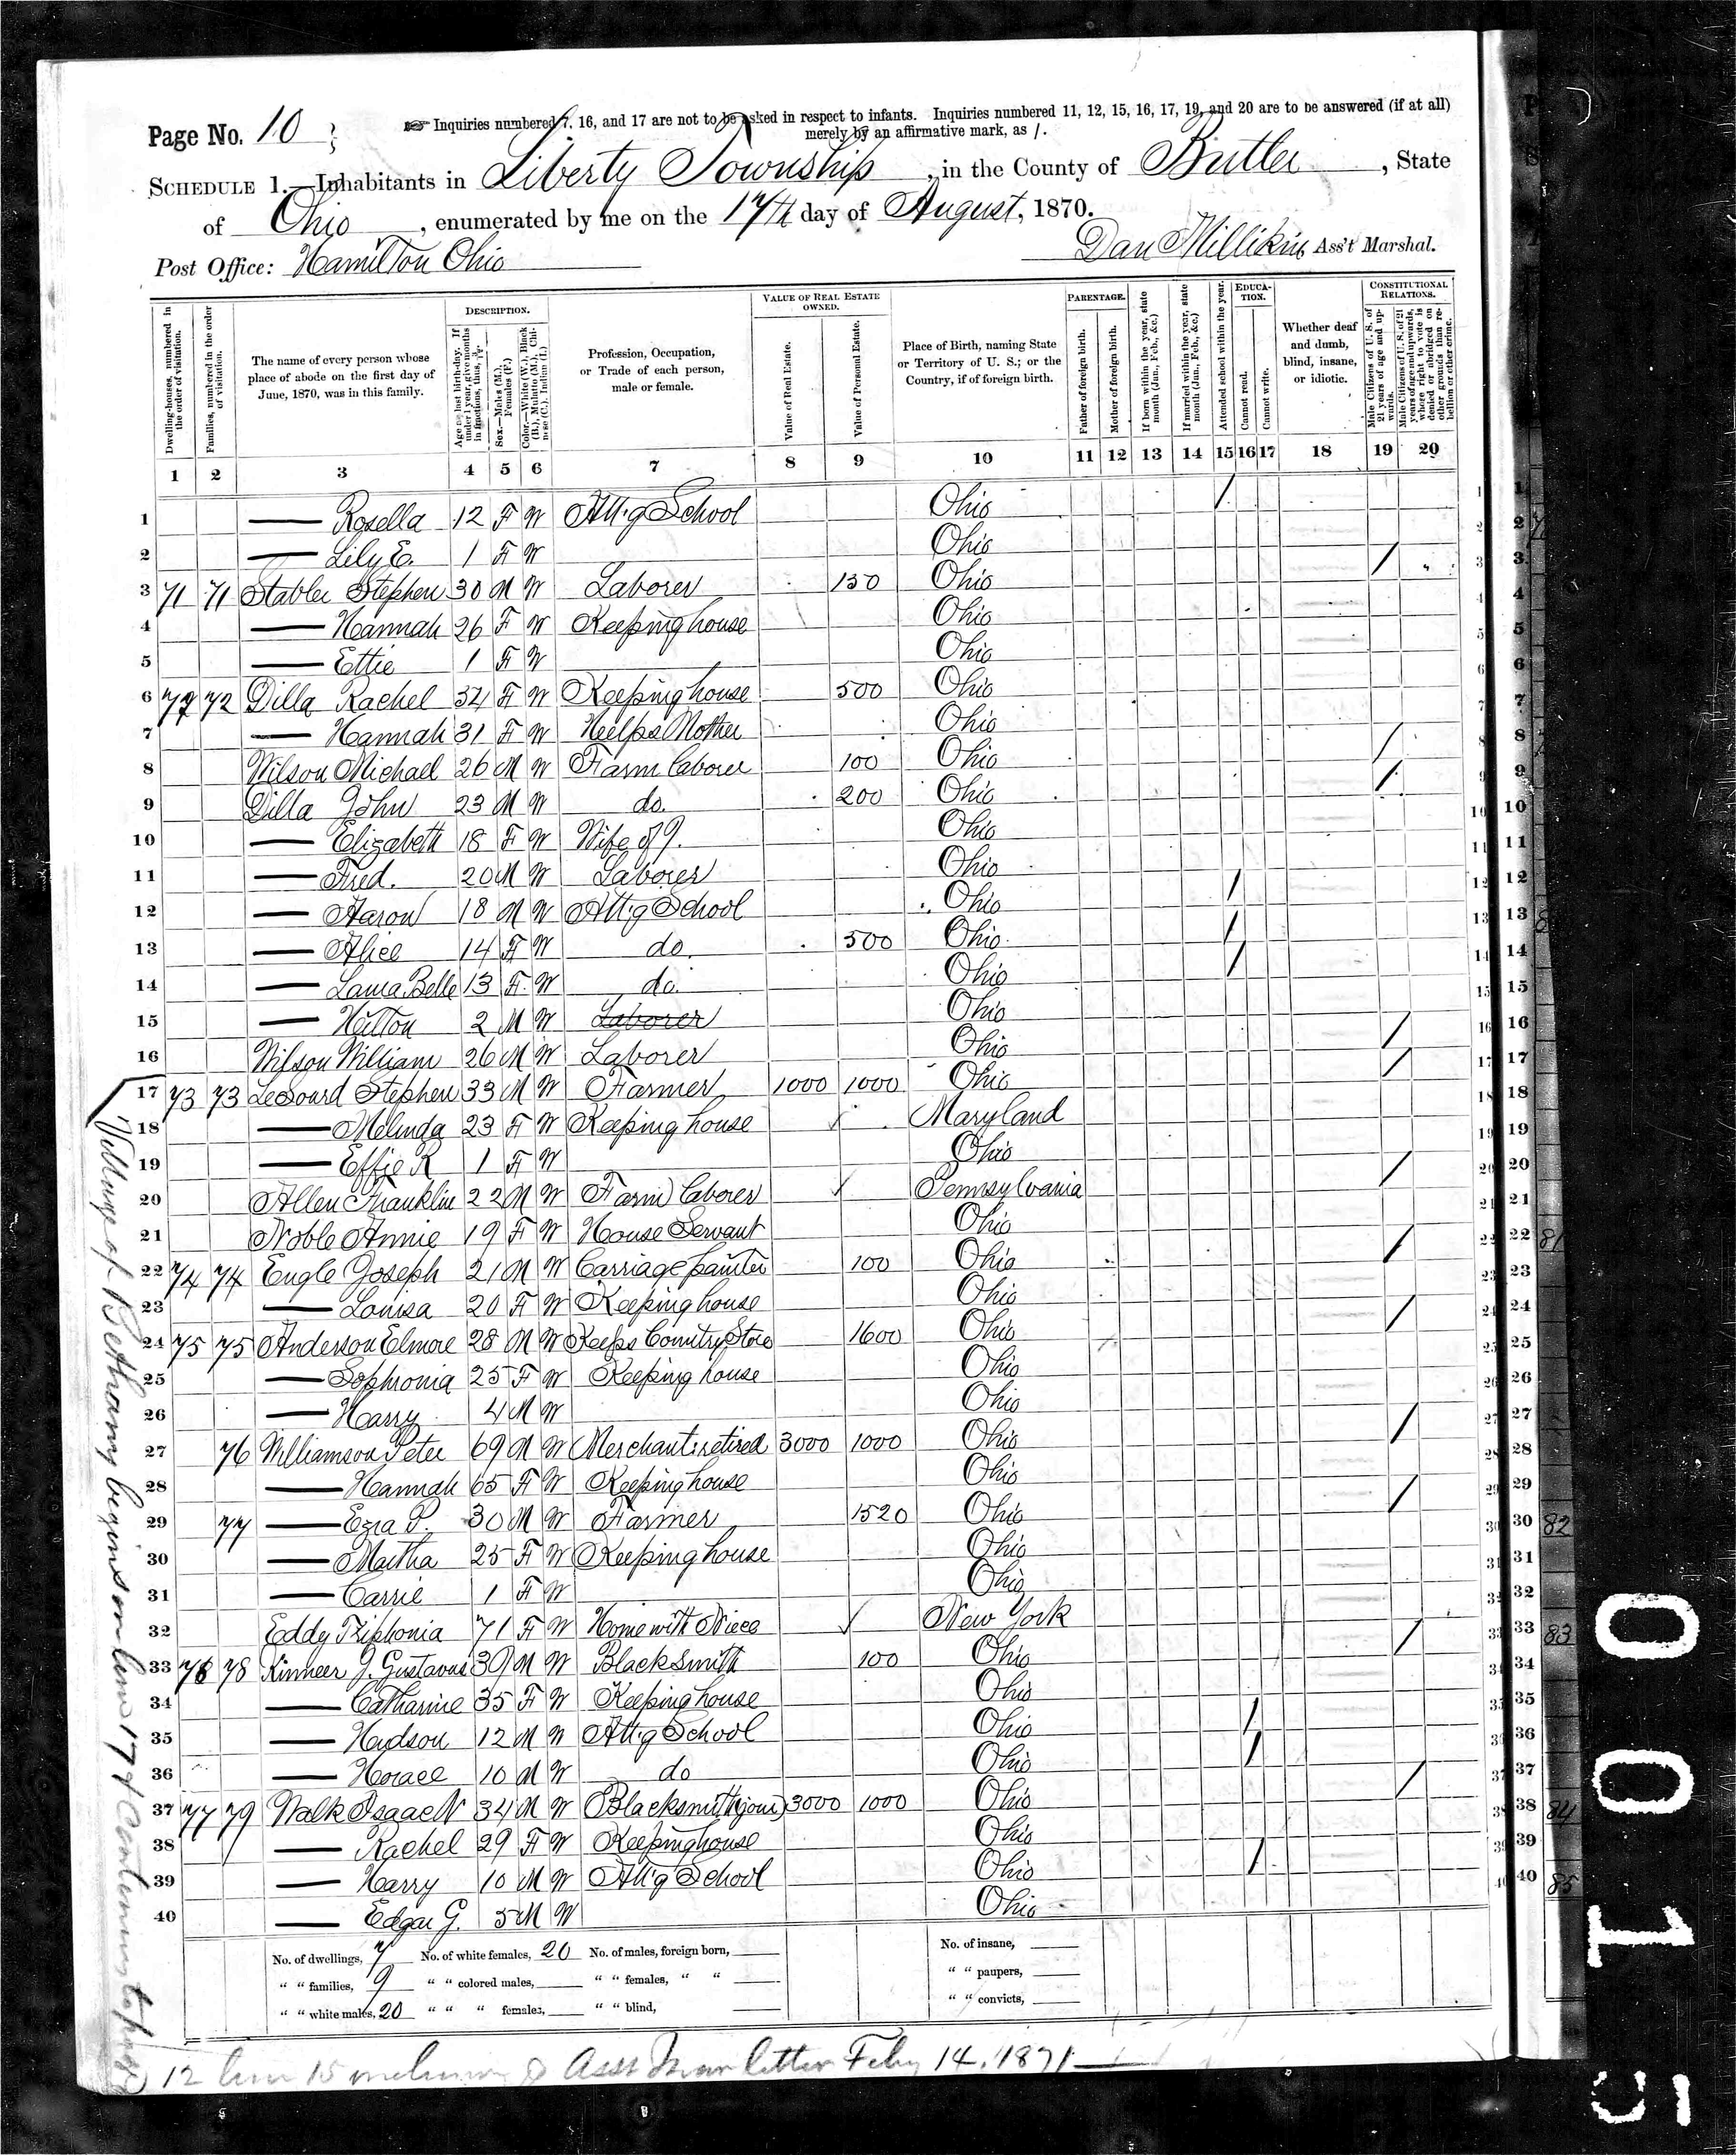 Page No. 10
☞ Inquiries numbered 7, 16, and 17 are not to be asked in respect to infants. Inquiries numbered 11, 12, 15, 16, 17, 19, and 20 are to be answered (if at all)
merely by an affirmative mark, as /.
Schedule 1.—Inhabitants in Liberty Township, in the County of Butler, State
of Ohio, enumerated by me on the 17th day of August, 1870.
Post Office: Hamilton Ohio
Dan Millikin Ass't Marshal.
Dwelling-houses, numbered in the order of visitation.
Families, numbered in the order of visitation.
The name of every person whose place of abode on the first day of June, 1870, was in this family.
Description.
Age at last birth-day. If under 1 year, give months in fractions, thus, 3/12.
Sex.—Males (M.), Females (F.)
Color.—White (W.), Black (B.), Mulatto (M.), Chinese (C.), Indian (I.)
Profession, Occupation, or Trade of each person, male or female.
Value of Real Estate Owned.
Value of Real Estate.
Value of Personal Estate.
Place of Birth, naming State or Territory of U. S.; or the Country, if of foreign birth.
Parentage.
Father of foreign birth.
Mother of foreign birth.
If born within the year, state month (Jan., Feb., &c.)
If married within the year, state month (Jan., Feb., &c.)
Attended school within the year.
Education.
Cannot read.
Cannot write.
Whether deaf and dumb, blind, insane, or idiotic.
Constitutional Relations.
Male Citizens of U. S. of 21 years of age and upwards.
Male Citizens of U. S. of 21 years of age and upwards, whose right to vote is denied or abridged on other grounds than rebellion or other crime.
1 2 3 4 5 6 7 8 9 10 11 12 13 14 15 16 17 18 19 20
1 — Rosella 12 F W Att'g School Ohio /
2 — Lily E. 1 F W Ohio
3 71 71 Stabler Stephen 30 M W Laborer 150 Ohio /
4 — Hannah 26 F W Keeping house Ohio
5 — Ettie 1 F W Ohio
6 72 72 Dilla Rachel 54 F W Keeping house 500 Ohio
7 — Hannah 31 F W Helps Mother Ohio
8 Wilson Michael 26 M W Farm laborer 100 Ohio /
9 Dilla John 23 M W do. 200 Ohio /
10 — Elizabeth 18 F W Wife of J. Ohio
11 — Fred. 20 M W Laborer Ohio
12 — Aaron 18 M W Att'g School Ohio /
13 — Alice 14 F W do. 500 Ohio /
14 — Laura Belle 13 F W do. Ohio /
15 — Hilton 2 M W Laborer Ohio
16 Wilson William 26 M W Laborer Ohio /
17 73 73 Leonard Stephen 33 M W Farmer 1000 1000 Ohio /
18 — Melinda 23 F W Keeping house Maryland
19 — Effie R 1 F W Ohio
20 Allen Franklin 22 M W Farm laborer Pennsylvania /
21 Noble Annie 19 F W House Servant Ohio
22 74 74 Engle Joseph 21 M W Carriage painter 100 Ohio /
23 — Louisa 20 F W Keeping house Ohio
24 75 75 Anderson Elmore 28 M W Keeps Country Store 1600 Ohio /
25 — Sophronia 25 F W Keeping house Ohio
26 — Harry 4 M W Ohio
27 76 Williamson Peter 69 M W Merchant retired 3000 1000 Ohio /
28 — Hannah 65 F W Keeping house Ohio
29 77 — Ezra P. 30 M W Farmer 1520 Ohio /
30 — Martha 25 F W Keeping house Ohio
31 — Carrie 1 F W Ohio
32 Eddy Triphonia 71 F W Home with Niece New York
33 76 78 Kinneer J. Gustavus 39 M W Blacksmith 100 Ohio /
34 — Catharine 35 F W Keeping house Ohio
35 — Hudson 12 M W Att'g School Ohio /
36 — Horace 10 M W do Ohio /
37 77 79 Walk Isaac N 34 M W Blacksmith (jour) 3000 1000 Ohio /
38 — Rachel 29 F W Keeping house Ohio
39 — Harry 10 M W Att'g School Ohio /
40 — Edgar G. 5 M W Ohio
No. of dwellings, 7 No. of white females, 20 No. of males, foreign born, No. of insane,
" " families, 9 " " colored males, " " females, " " " " paupers,
" " white males, 20 " " " females, " " blind, " " convicts,
Village of Bethany begins on line 17 & continues to page
12 line 15 inclusive Asst Mar letter Feby 14. 1871
81
82
83
84
85
0010